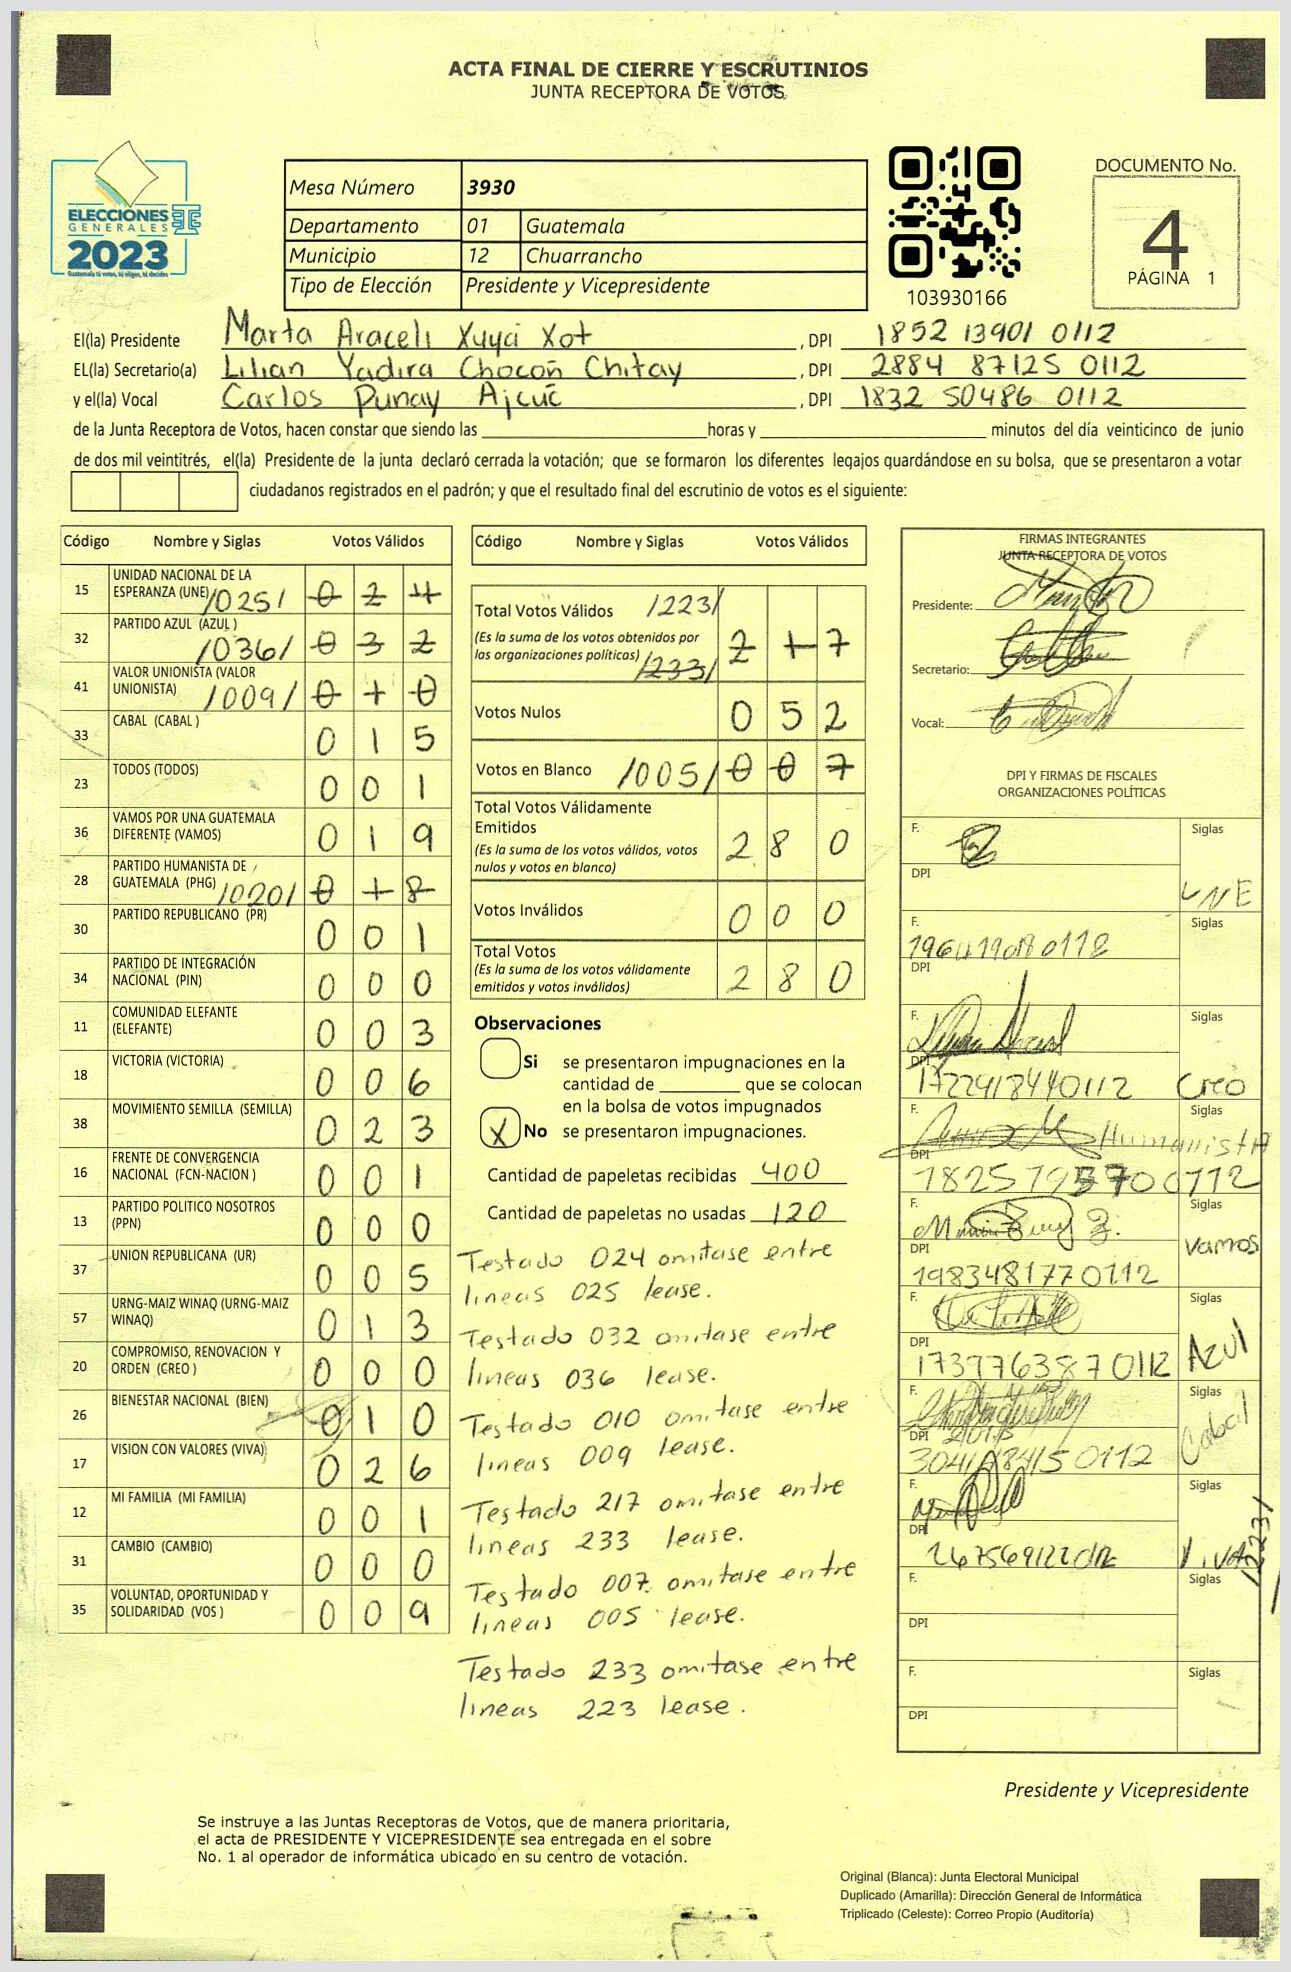 ACTA FINAL DE CIERRE Y ESCRUTINIOS
JUNTA RECEPTORA DE VOTOS
ELECCIONES
GENERALES
2023
Guatemala tú votas, tú eliges, tú decides
Mesa Número 3930
Departamento 01 Guatemala
Municipio 12 Chuarrancho
Tipo de Elección Presidente y Vicepresidente
103930166
DOCUMENTO No.
4
PÁGINA 1
El(la) Presidente Marta Araceli Xuya Xot , DPI 1852 13901 0112
EL(la) Secretario(a) Lilian Yadira Chocón Chitay , DPI 2884 87125 0112
y el(la) Vocal Carlos Punay Ajcúc , DPI 1832 50486 0112
de la Junta Receptora de Votos, hacen constar que siendo las horas y minutos del día veinticinco de junio
de dos mil veintitrés, el(la) Presidente de la junta declaró cerrada la votación; que se formaron los diferentes legajos guardándose en su bolsa, que se presentaron a votar
ciudadanos registrados en el padrón; y que el resultado final del escrutinio de votos es el siguiente:
Código Nombre y Siglas Votos Válidos
15 UNIDAD NACIONAL DE LA ESPERANZA (UNE) /025/ 0 2 4
32 PARTIDO AZUL (AZUL ) /036/ 0 3 2
41 VALOR UNIONISTA (VALOR UNIONISTA) /009/ 0 1 0
33 CABAL (CABAL ) 0 1 5
23 TODOS (TODOS) 0 0 1
36 VAMOS POR UNA GUATEMALA DIFERENTE (VAMOS) 0 1 9
28 PARTIDO HUMANISTA DE GUATEMALA (PHG) /020/ 0 1 8
30 PARTIDO REPUBLICANO (PR) 0 0 1
34 PARTIDO DE INTEGRACIÓN NACIONAL (PIN) 0 0 0
11 COMUNIDAD ELEFANTE (ELEFANTE) 0 0 3
18 VICTORIA (VICTORIA) 0 0 6
38 MOVIMIENTO SEMILLA (SEMILLA) 0 2 3
16 FRENTE DE CONVERGENCIA NACIONAL (FCN-NACION ) 0 0 1
13 PARTIDO POLITICO NOSOTROS (PPN) 0 0 0
37 UNION REPUBLICANA (UR) 0 0 5
57 URNG-MAIZ WINAQ (URNG-MAIZ WINAQ) 0 1 3
20 COMPROMISO, RENOVACION Y ORDEN (CREO ) 0 0 0
26 BIENESTAR NACIONAL (BIEN) 0 1 0
17 VISION CON VALORES (VIVA) 0 2 6
12 MI FAMILIA (MI FAMILIA) 0 0 1
31 CAMBIO (CAMBIO) 0 0 0
35 VOLUNTAD, OPORTUNIDAD Y SOLIDARIDAD (VOS ) 0 0 9
Código Nombre y Siglas Votos Válidos
Total Votos Válidos /223/
(Es la suma de los votos obtenidos por
las organizaciones políticas) /233/ 2 1 7
Votos Nulos 0 5 2
Votos en Blanco /005/ 0 0 7
Total Votos Válidamente
Emitidos
(Es la suma de los votos válidos, votos
nulos y votos en blanco) 2 8 0
Votos Inválidos 0 0 0
Total Votos
(Es la suma de los votos válidamente
emitidos y votos inválidos) 2 8 0
Observaciones
Si se presentaron impugnaciones en la
cantidad de que se colocan
en la bolsa de votos impugnados
X No se presentaron impugnaciones.
Cantidad de papeletas recibidas 400
Cantidad de papeletas no usadas 120
Testado 024 omitase entre
lineas 025 lease.
Testado 032 omitase entre
lineas 036 lease.
Testado 010 omitase entre
lineas 009 lease.
Testado 217 omitase entre
lineas 233 lease.
Testado 007 omitase entre
lineas 005 lease.
Testado 233 omitase entre
lineas 223 lease.
FIRMAS INTEGRANTES
JUNTA RECEPTORA DE VOTOS
Presidente:
Secretario:
Vocal:
DPI Y FIRMAS DE FISCALES
ORGANIZACIONES POLÍTICAS
F. Siglas
DPI UNE
F. Siglas
DPI
F. Siglas
DPI 1722918440112 Creo
F. Siglas
Humanista
DPI
F. Siglas
DPI 1983481770112 Vamos
F. Siglas
DPI 1739763870112 Azul
F. Siglas
DPI Cabal
F. Siglas
DPI Viva
/223/
F. Siglas
DPI
F. Siglas
DPI
Presidente y Vicepresidente
Se instruye a las Juntas Receptoras de Votos, que de manera prioritaria,
el acta de PRESIDENTE Y VICEPRESIDENTE sea entregada en el sobre
No. 1 al operador de informática ubicado en su centro de votación.
Original (Blanca): Junta Electoral Municipal
Duplicado (Amarilla): Dirección General de Informática
Triplicado (Celeste): Correo Propio (Auditoría)